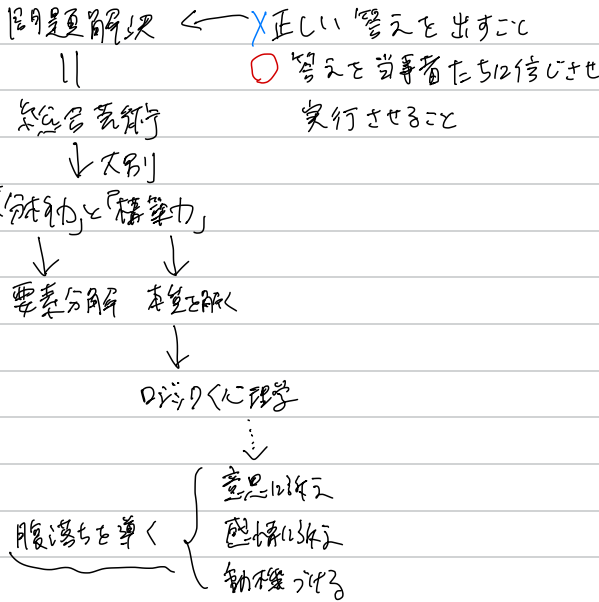 問題解決 ← ×正しい答えを出すこと
|| ○ 答えを当事者たちに信じさせ
総合芸術 実行させること
↓大別
「分析力」と「構築力」
↓ ↓
要素分解 本質を解く
↓
ロジック<心理学
↓
意思に訴え
腹落ちを導く { 感情に訴え
動機づける